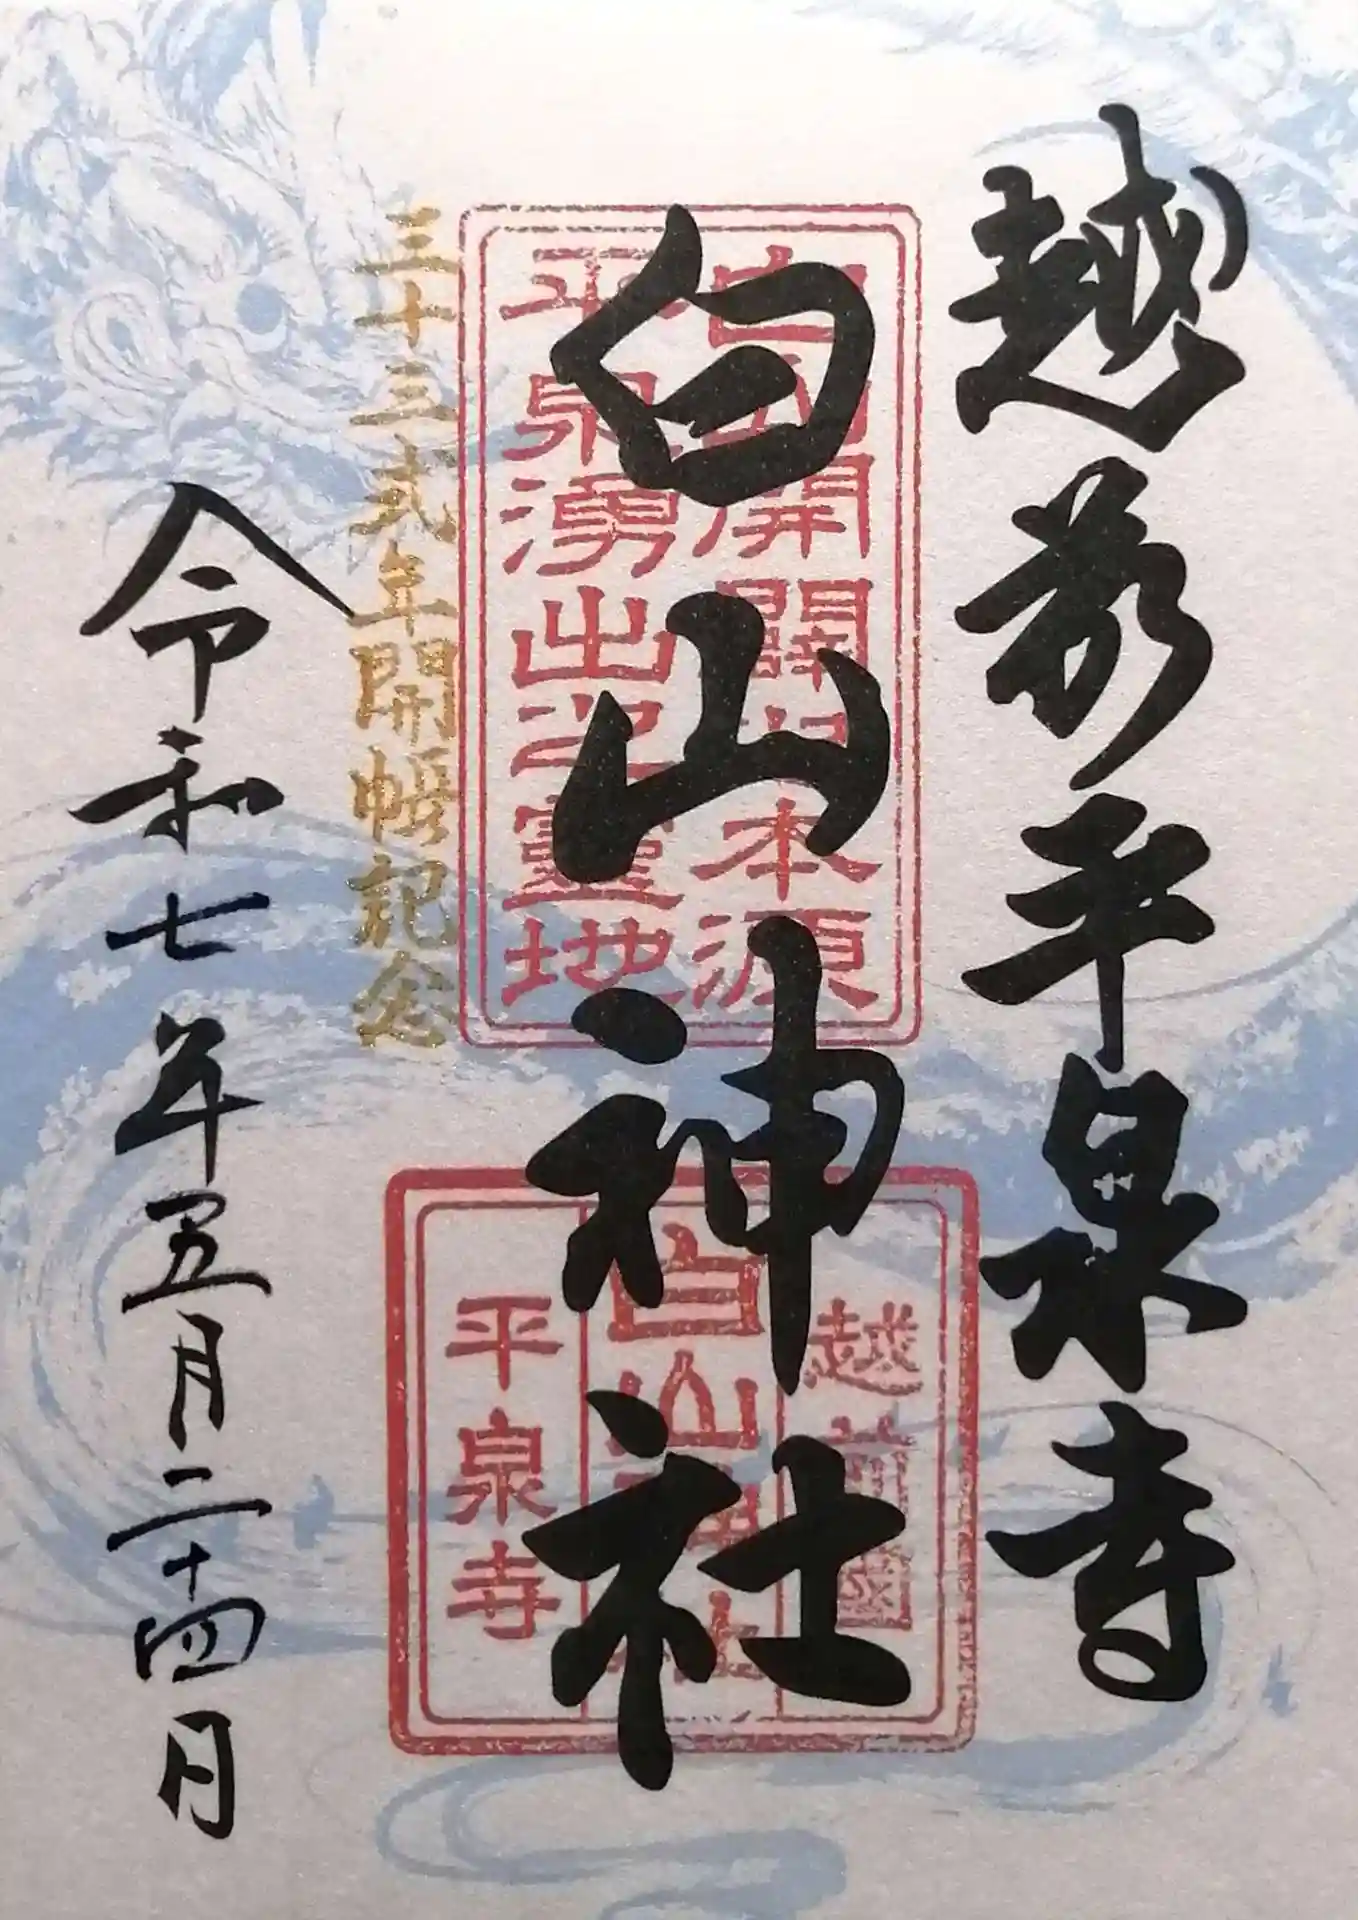 越前平泉寺
白山神社
白山開闢之本源
平泉湧出之靈地
越前國
白山神社
平泉寺
三十三式年開帳記念
令和七年五月二十四日